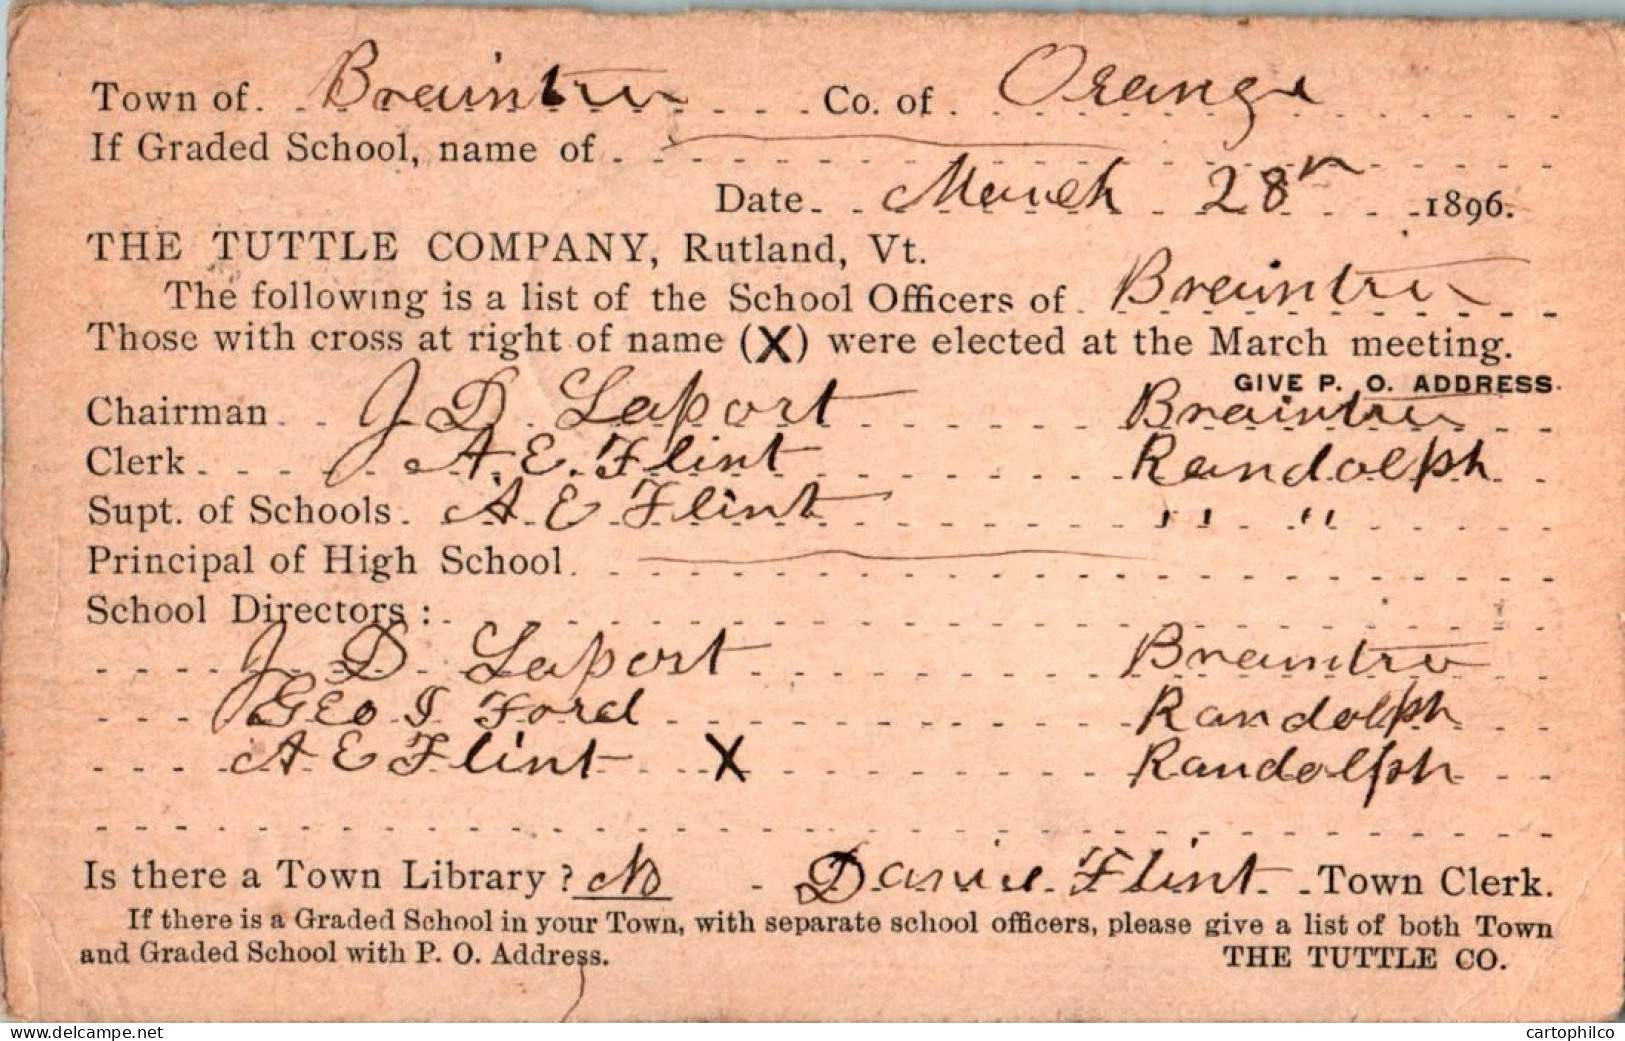 Town of Braintree Co. of Orange
If Graded School, name of
Date March 28th 1896.
THE TUTTLE COMPANY, Rutland, Vt.
The following is a list of the School Officers of Braintree
Those with cross at right of name (X) were elected at the March meeting.
GIVE P. O. ADDRESS.
Chairman J D Laport Braintree
Clerk A. E. Flint Randolph
Supt. of Schools A E Flint " "
Principal of High School
School Directors :
J D Laport Braintree
Geo I Ford Randolph
A E Flint X Randolph
Is there a Town Library ? No Daniel Flint Town Clerk.
If there is a Graded School in your Town, with separate school officers, please give a list of both Town
and Graded School with P. O. Address. THE TUTTLE CO.
www.delcampe.net cartophilco